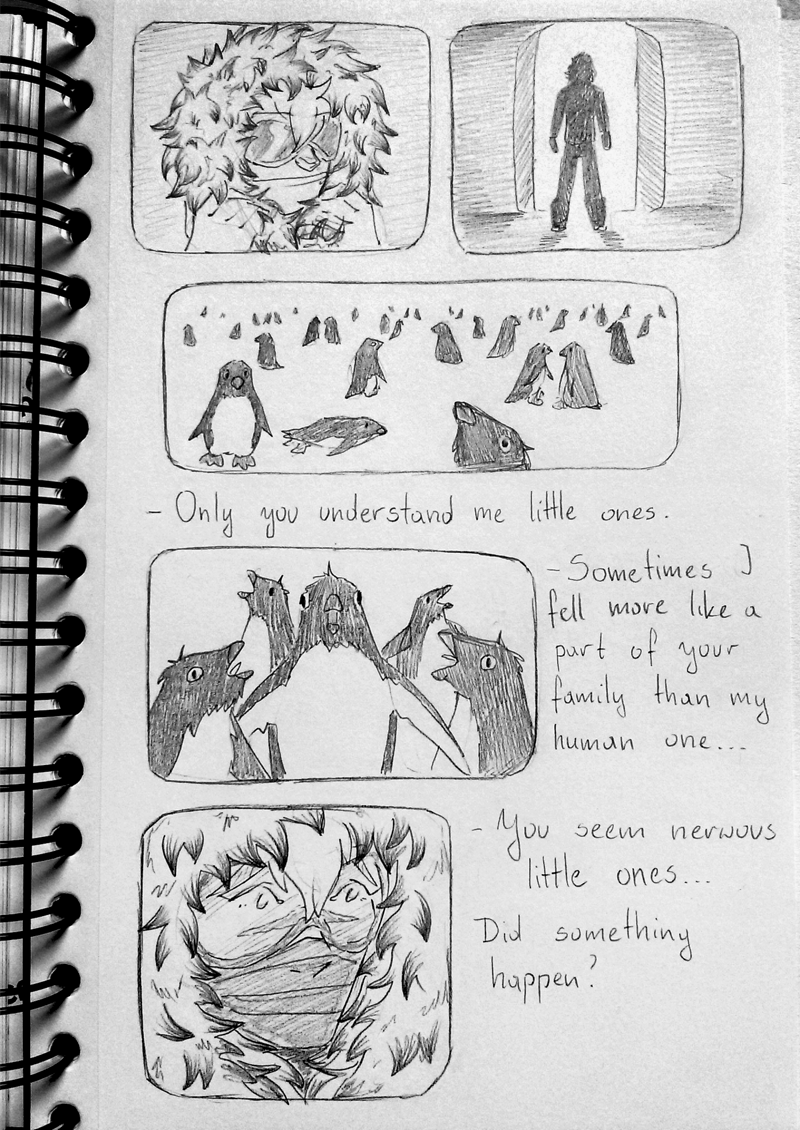 - Only you understand me little ones.
- Sometimes I
fell more like a
part of your
family than my
human one...
- You seem nerwous
little ones...
Did something
happen?